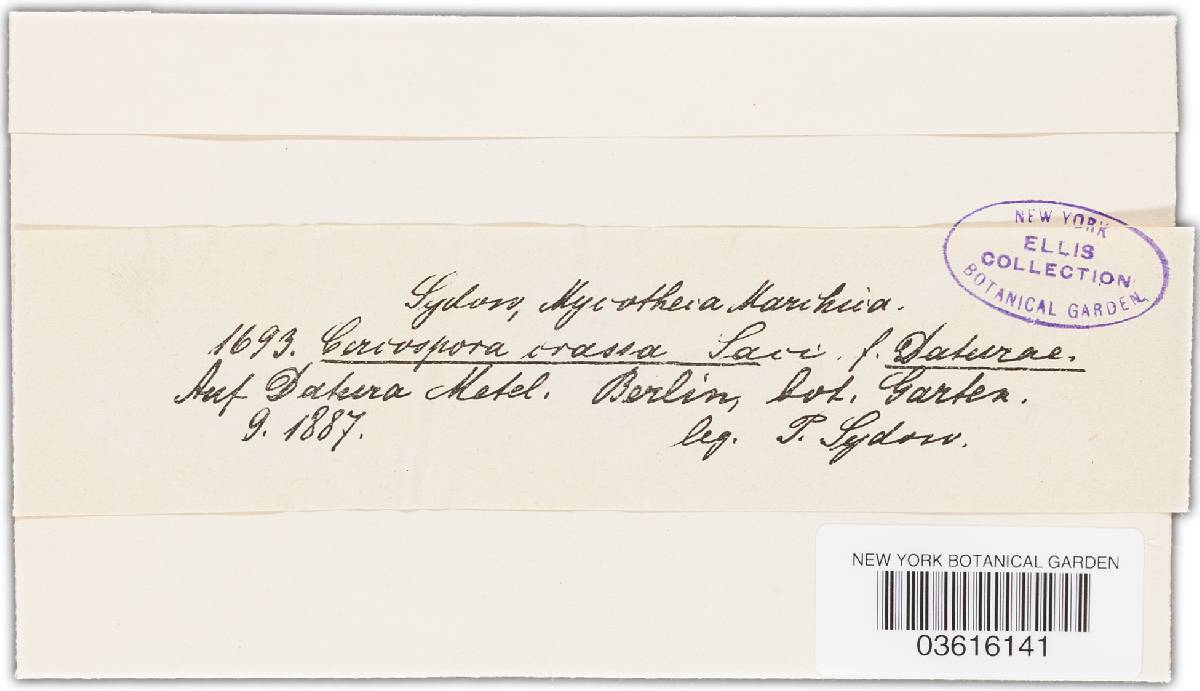 NEW YORK
ELLIS
COLLECTION
BOTANICAL GARDEN
Sydow, Mycotheca Marchica.
1693. Cercospora crassa Sacc. f. Daturae.
Auf Datura Metel. Berlin, bot. Garten.
9. 1887. leg. P. Sydow.
NEW YORK BOTANICAL GARDEN
03616141